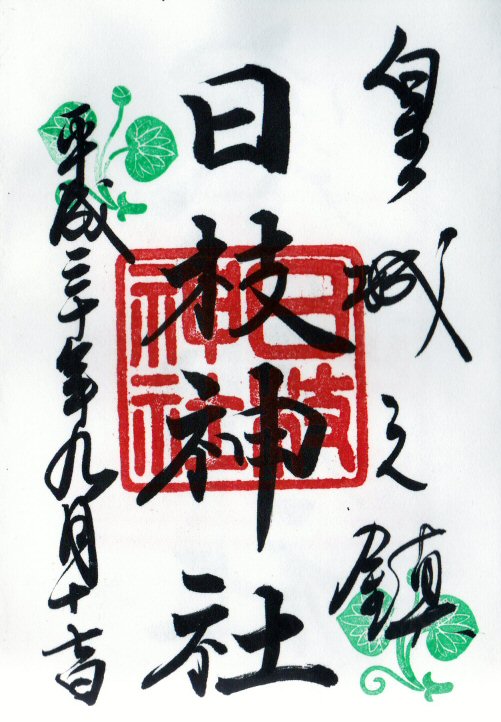 皇城之鎮
日枝神社
日枝神社
平成三十年九月十七日